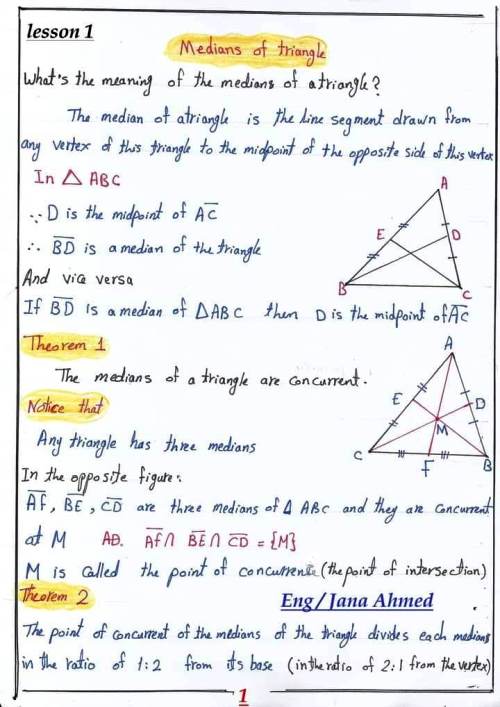 lesson 1
Medians of triangle
What's the meaning of the medians of a triangle?
The median of a triangle is the line segment drawn from
any vertex of this triangle to the midpoint of the opposite side of this vertex
In △ ABC
∵ D is the midpoint of A̅C̅
∴ B̅D̅ is a median of the triangle
And vice versa
If B̅D̅ is a median of △ABC then D is the midpoint of A̅C̅
A
E
D
B
C
Theorem 1
The medians of a triangle are concurrent.
Notice that
Any triangle has three medians
In the opposite figure:
A̅f̅, B̅E̅, C̅D̅ are three medians of △ ABC and they are concurrent
at M AD. A̅f̅ ∩ B̅E̅ ∩ C̅D̅ = {M}
M is called the point of concurrence (the point of intersection)
A
E
D
M
C
F
B
Theorem 2
Eng/Jana Ahmed
The point of concurrent of the medians of the triangle divides each medians
in the ratio of 1:2 from its base (in the ratio of 2:1 from the vertex)
1